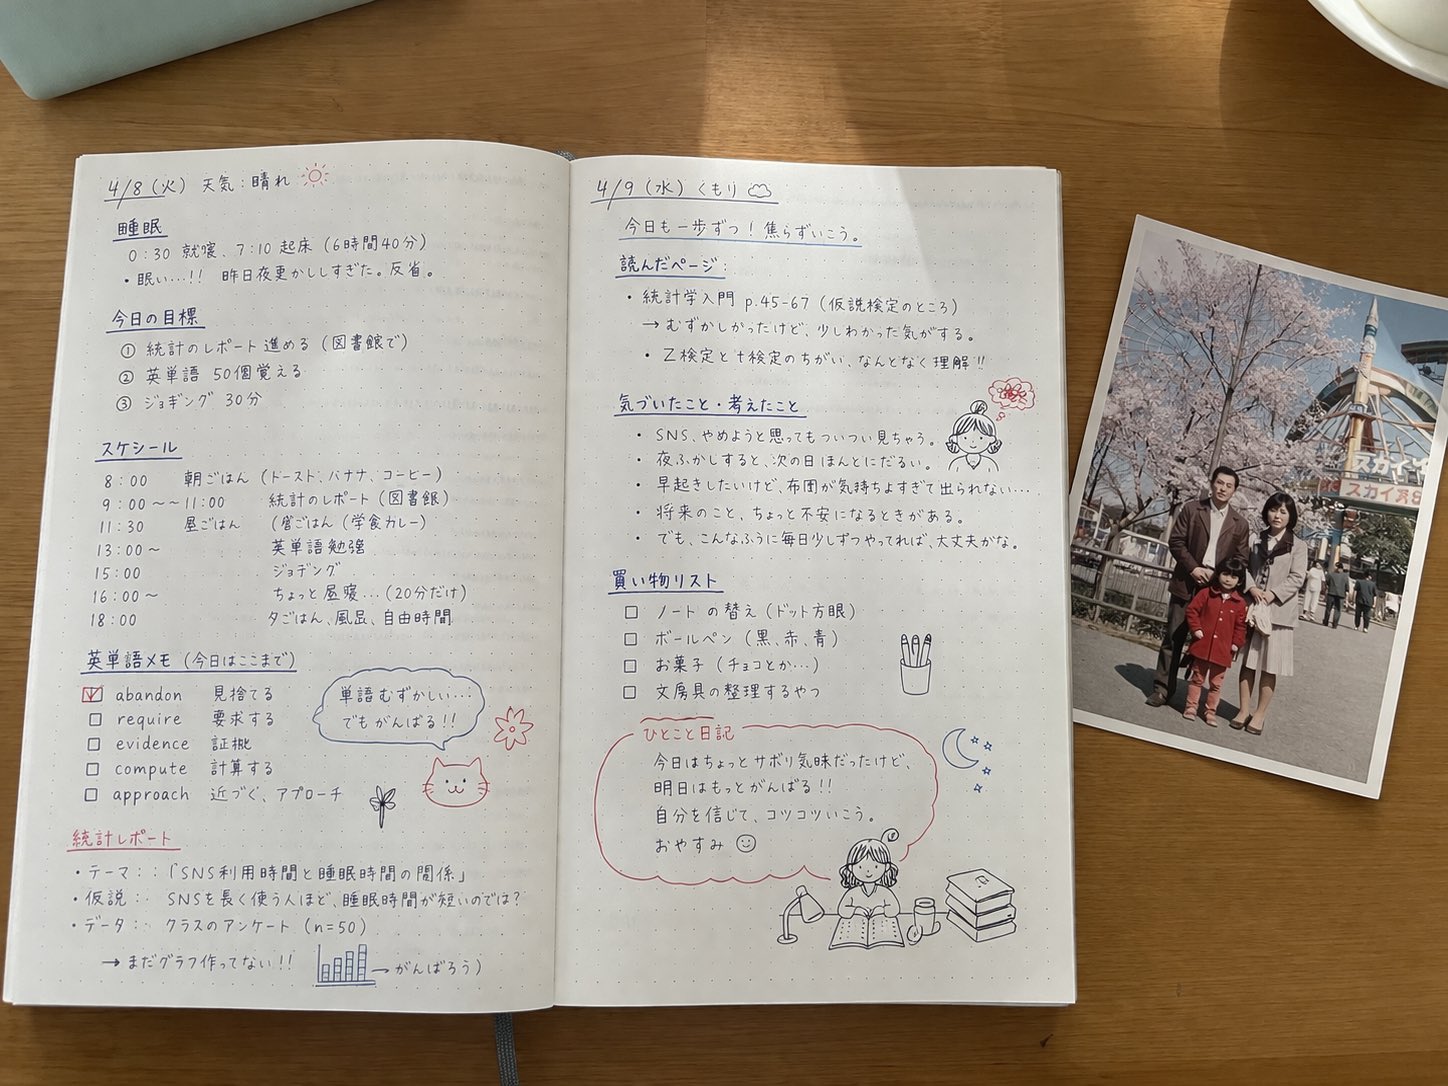 4/8(火) 天気:晴れ
睡眠
0:30 就寝、7:10 起床 (6時間40分)
・眠い…!! 昨日夜更かししすぎた。反省。
今日の目標
① 統計のレポート進める (図書館で)
② 英単語 50個覚える
③ ジョギング 30分
スケシール
8:00 朝ごはん (トースト、バナナ、コーヒー)
9:00~~11:00 統計のレポート (図書館)
11:30 昼ごはん (昼ごはん (学食カレー)
13:00~ 英単語勉強
15:00 ジョギング
16:00~ ちょっと昼寝… (20分だけ)
18:00 夕ごはん、風呂、自由時間
英単語メモ (今日はここまで)
abandon 見捨てる
require 要求する
evidence 証拠
compute 計算する
approach 近づく、アプローチ
単語むずかしい…:
でもがんばる!!
統計レポート
・テーマ::「SNS利用時間と睡眠時間の関係」
・仮説:・ SNSを長く使う人ほど、睡眠時間が短いのでは?
・データ:: クラスのアンケート (n=50)
→ まだグラフ作ってない!!
→ がんばろう)
4/9 (水) くもり
今日も一歩ずつ! 焦らずいこう。
読んだページ:
・統計学入門 p.45-67 (仮説検定のところ)
→ むずかしかったけど、少しわかった気がする。
・Z検定とt検定のちがい、なんとなく理解!!
気づいたこと・考えたこと
・SNS、やめようと思ってもついつい見ちゃう。
・夜ふかしすると、次の日ほんとにだるい。
・早起きしたいけど、布団が気持ちよすぎて出られない…
・将来のこと、ちょっと不安になるときがある。
・でも、こんなふうに毎日少しずつやってれば、大丈夫かな。
買い物リスト
ノートの替え (ドット方眼)
ボールペン (黒、赤、青)
お菓子 (チョコとか…)
文房具の整理するやつ
ひとこと日記
今日はちょっとサボり気味だったけど、
明日はもっとがんばる!!
自分を信じて、コツコツいこう。
おやすみ
スカイ
スカイ